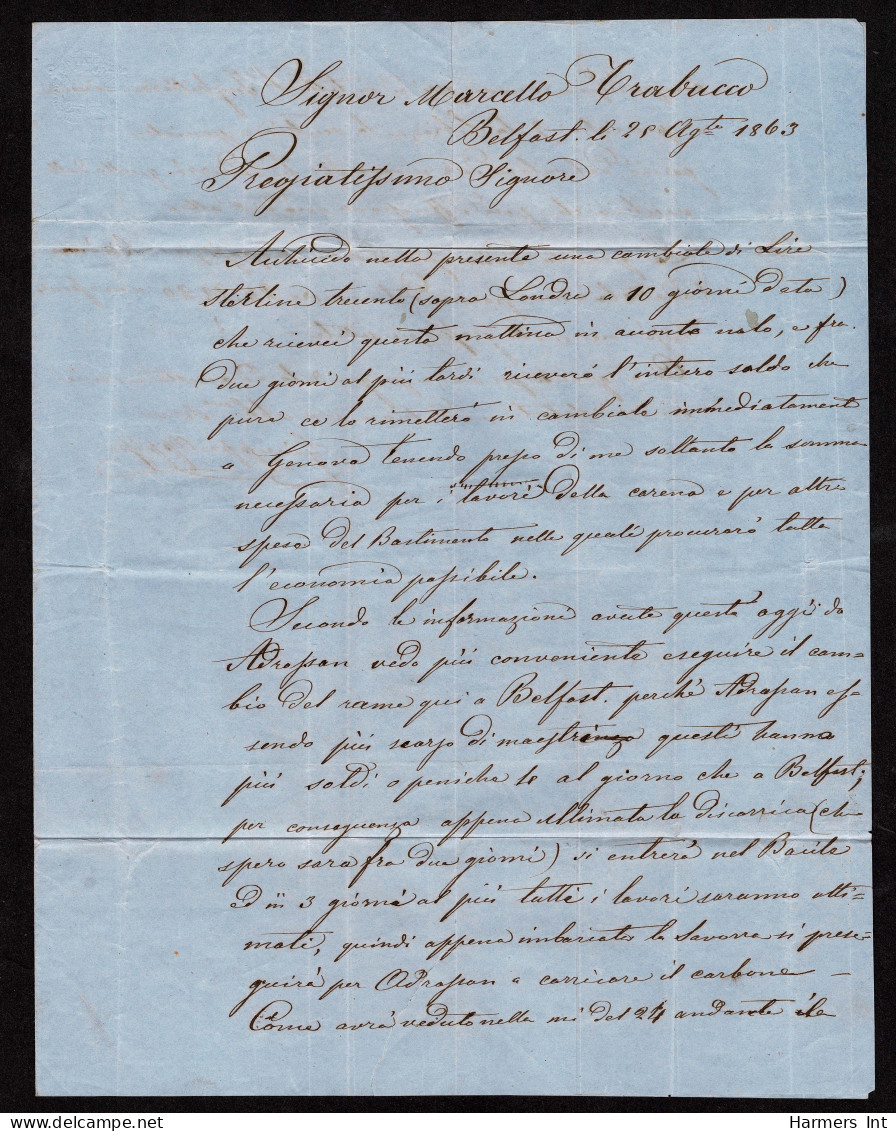 Signor Marcello Trabucco
Belfast. li 28 Agto 1863
Pregiatissimo Signore
Acchiudo nella presente una cambiale di Lire
sterline trecento (sopra Londra a 10 giorni data)
che ricevei questa mattina in acconto nolo, e fra
due giorni al più tardi riceverò l'intiero saldo che
pure ce lo rimetterò in cambiale immediatamente
a Genova tenendo presso di me soltanto la somma
necessaria per i lavori della carena e per altre
spese del Bastimento nelle quali procurerò tutta
l'economia possibile.
Secondo le informazioni avute quest' oggi da
Adrossan vedo più conveniente eseguire il cam-
bio del rame qui a Belfast. perchè Adrossan es-
sendo più scarso di maestranza questi hanno
più soldi al giorno che a Belfast;
per conseguenza appena ultimata la discarrica (che
spero sarà fra due giorni) si entrerà nel Bacile
ed in 3 giorni al più tutti i lavori saranno ulti-
mati, quindi appena imbarcata la Savorra si prose-
guirà per Adrossan a carricare il carbone –
Come avrà veduto nella mi del 24 andante
Harmers Int